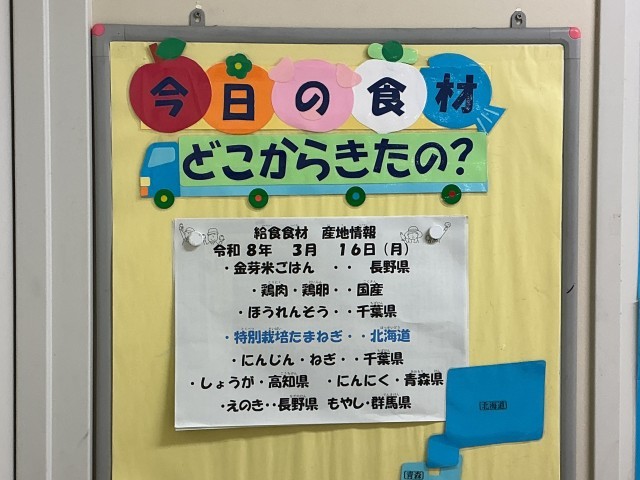 今日の食材
どこからきたの?
給食食材 産地情報
令和8年 3月 16日(月)
・金芽米ごはん ・・ 長野県
・鶏肉・鶏卵・・国産
・ほうれんそう・・千葉県
・特別栽培たまねぎ・・北海道
・にんじん・ねぎ・・千葉県
・しょうが・高知県 ・にんにく・青森県
・えのき・・長野県 もやし・群馬県
北海道
青森